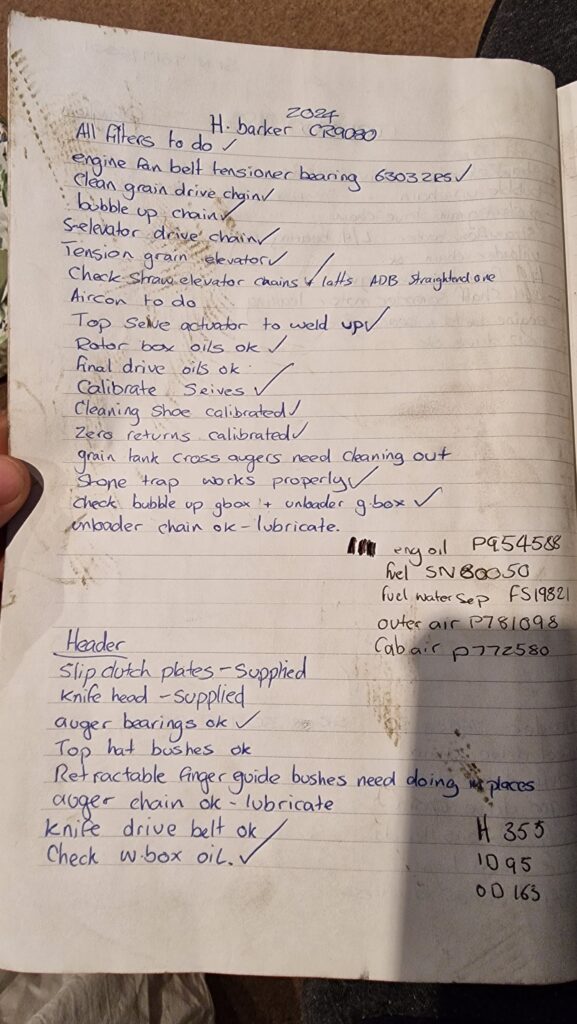 2024
H. barker CR9080
All filters to do ✓
engine fan belt tensioner bearing 63032RS ✓
Clean grain drive chain ✓
bubble up chain ✓
S-elevator drive chain ✓
Tension grain elevator ✓
Check straw elevator chains + latts ADB Straightend one
Aircon to do
Top Seive actuator to weld up ✓
Rotor box oils ok ✓
final drive oils ok
Calibrate Seives ✓
Cleaning Shoe calibrated ✓
Zero returns calibrated ✓
grain tank cross augers need cleaning out
Stone trap works properly ✓
Check bubble up gbox + unloader g.box ✓
unloader chain ok - lubricate.
eng oil P954588
fuel SN80050
fuel water sep FS19821
outer air P781098
Cab air P772580
Header
Slip clutch plates - Supplied
Knife head - Supplied
auger bearings ok ✓
Top hat bushes ok
Retractable finger guide bushes need doing in places
auger chain ok - lubricate
Knife drive belt ok ✓
Check w.box oil. ✓
H 355
ID 95
OD 163